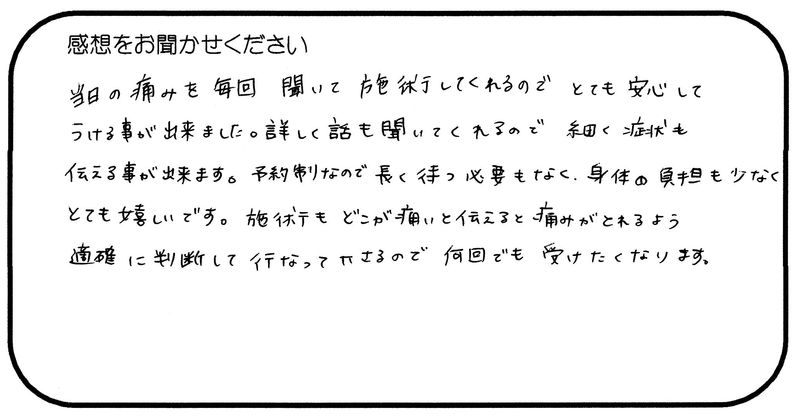 感想をお聞かせください
当日の痛みを毎回 聞いて 施術してくれるので とても 安心して
うける事が出来ました。詳しく話も聞いてくれるので 細く症状も
伝える事が出来ます。予約制なので長く待つ必要もなく、身体の負担も少なく
とても嬉しいです。施術も どこが痛いと伝えると痛みがとれるよう
適確に判断して行なって下さるので 何回でも 受けたくなります。